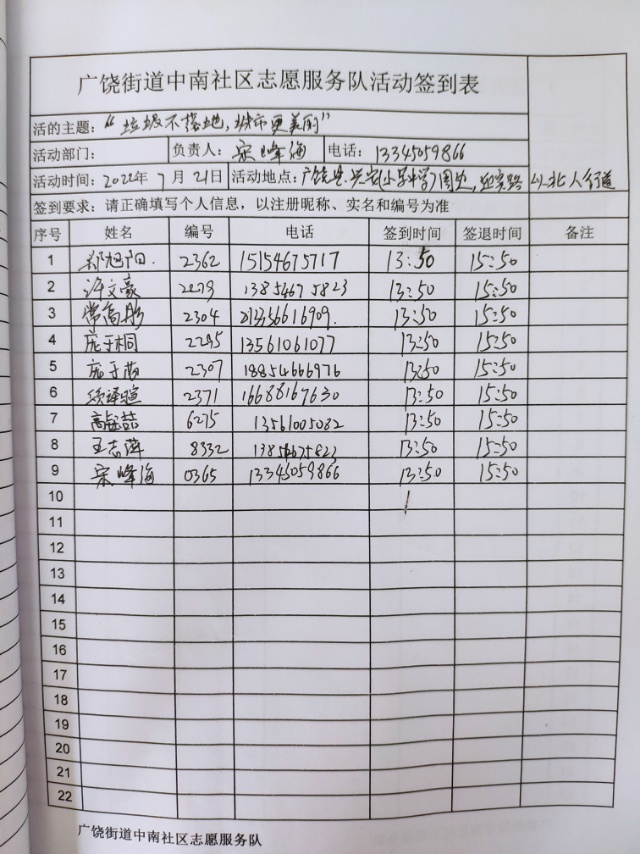 广饶街道中南社区志愿服务队活动签到表
活的主题：“垃圾不落地，城市更美丽”
活动部门： 负责人：宋峰海 电话：13345059866
活动时间：2022年7月21日 活动地点：广饶县 小学 周边，迎宾路以北人行道
签到要求：请正确填写个人信息，以注册昵称、实名和编号为准
序号 姓名 编号 电话 签到时间 签退时间 备注
1 郑旭阳 2362 15154675717 13:50 15:50
2 许文豪 2279 13854675823 13:50 15:50
3 2304 13:50 15:50
4 庞于桐 2295 13561061077 13:50 15:50
5 2307 18854666976 13:50 15:50
6 2371 16688167630 13:50 15:50
7 6275 13561005082 13:50 15:50
8 王志萍 8332 13854675823 13:50 15:50
9 宋峰海 0365 13345059866 13:50 15:50
10
11
12
13
14
15
16
17
18
19
20
21
22
广饶街道中南社区志愿服务队